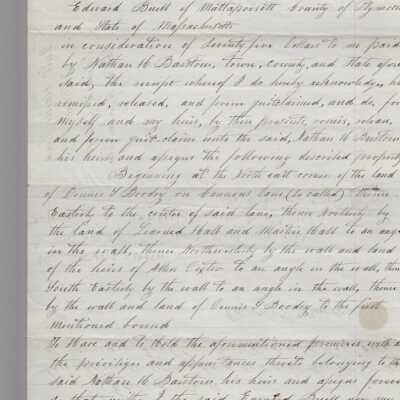 Edward Buell of Mattapoisett County of Plymouth
and State of Massachusetts
in consideration of Seventy five Dollars to me paid
by Nathan H Barstow, town, County, and State afore
said, the receipt whereof I do hereby acknowledge, ha
remised, released, and forever quitclaimed, and do, for
Myself and my heirs, by these presents, remise, release,
and forever quit-claim unto the said, Nathan H Barstow
his heirs and assigns the following described property
Beginning at the North east corner of the land
of Dennis Boodry on Cannons lane (so called) thence
Easterly to the center of said lane, thence Northerly by
the land of Leonard Hall and Martin Hall to an angle
in the wall, thence Northwesterly by the wall and land
of the heirs of Allen to an angle in the wall, thence
South Easterly by the wall to an angle in the wall, thence
by the wall and land of Dennis Boodry to the first
Mentioned bound
To Have and to Hold the aforementioned premises with all
the priviliges and appurtances thereto belonging to the
said Nathan H Barstow his heirs and assigns forever
so that I the said Edward Buell nor my